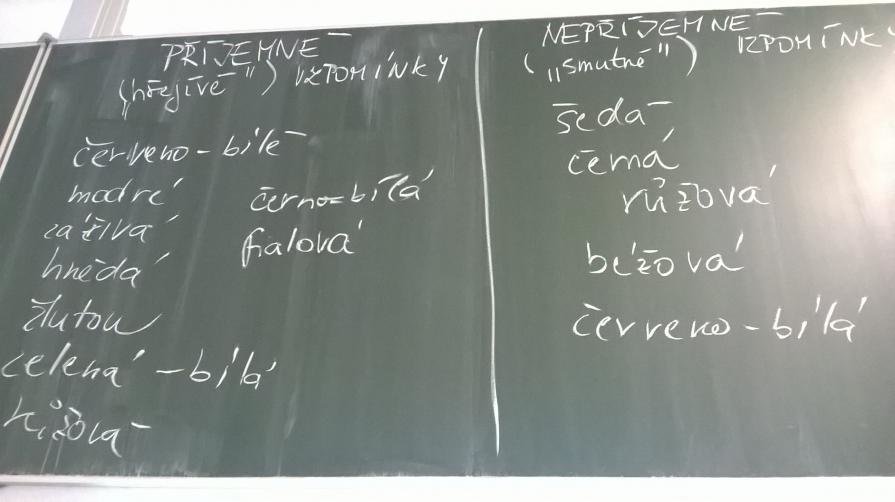 PŘÍJEMNÉ
(„hřejivé") VZPOMÍNKY
červeno-bílé
modré
zářivá
hnědá
žlutou
zelená-bílá
růžová
černo-bílá
fialová
NEPŘÍJEMNÉ
(„smutné") VZPOMÍNKY
šedá
černá
růžová
béžová
červeno-bílá